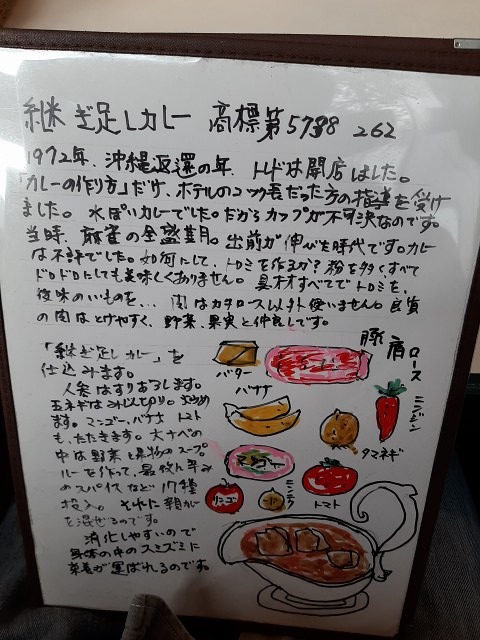 継ぎ足しカレー 商標第5798262
1972年、沖縄返還の年、トドは開店しました。
「カレーの作り方」だけ、ホテルのコック長だった方の指導を受け
ました。水ぽいカレーでした。だからカップが不可決なのです。
当時、麻雀の全盛期。出前が伸びた時代です。カレー
は不評でした。如何にして、トロミを作るか? 粉を多くすべて
ドロドロにしても美味しくありません。具オオすべてでトロミを、
後味のいいものを... 肉はカタロース以外使いません。良質
の肉はとけやすく、野菜、果実と仲良しです。
豚肩ロース
「継ぎ足しカレー」を
仕込みます。
人参はすりおろします。
玉ネギはみじん切り。炒め
ます。マンゴー、バナナ トマト
も、たたきます。大ナベの
中は野菜と果物のスープ。
ルーを作って、
のスパイスなど17種
投入。それに親カレー
を混ぜるのです。
消化しやすいので
身体の中のスミズミに
栄養が運ばれるのです
バター
バナナ
ニンジン
タマネギ
マンゴー
リンゴ
ニンニク
トマト